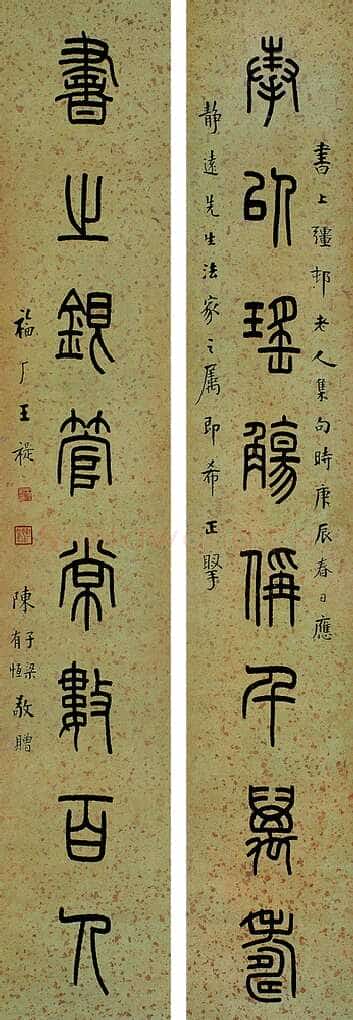 奉以瑤觴偁千萬壽
書上彊邨老人集句時庚辰春日應
靜遠先生法家之属即希正掔
書之銀管常數百人
福厂王禔
陳子梁
有恆敬贈